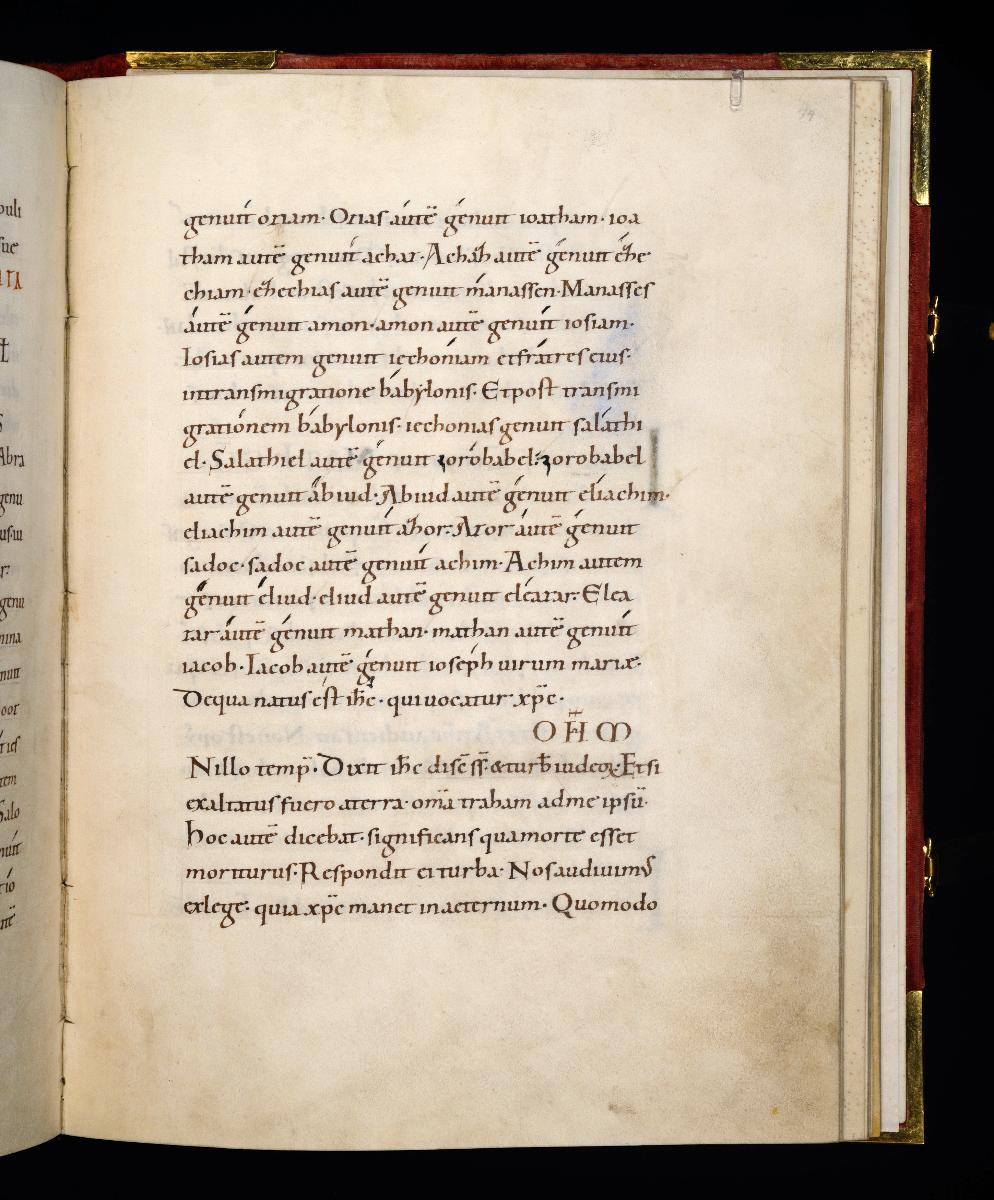 genuit oziam· Ozias autē genuit ioatham· ioa
tham autē genuit achaz· Achaz autē genuit eze
chiam· ezechias autē genuit manassen· Manasses
autē genuit amon· amon autē genuit iosiam·
Iosias autem genuit iechoniam et fratres eius·
in transmigratione babylonis· Et post transmi
grationem babylonis· iechonias genuit salathi
el· Salathiel autē genuit zorobabel· zorobabel
autē genuit abiud· Abiud autē genuit eliachim·
eliachim autē genuit azor· Azor autē genuit
sadoc· sadoc autē genuit achim· Achim autem
genuit eliud· eliud autē genuit eleazar· Elea
zar autē genuit mathan· mathan autē genuit
iacob· Iacob autē genuit ioseph uirum mariæ·
De qua natus est ihc· qui uocatur xp̄c·
O H̄ M
N illo temp̄· Dixit ihc disc̄ s̄s· & turb̄ iudeoꝝ· Et si
exaltatus fuero aterra· om̄a traham ad me ipsū·
hoc autē dicebat· significans qua morte esset
moriturus· Respondit ei turba· Nos audiuimus
ex lege· quia xp̄c manet in aeternum· Quomodo